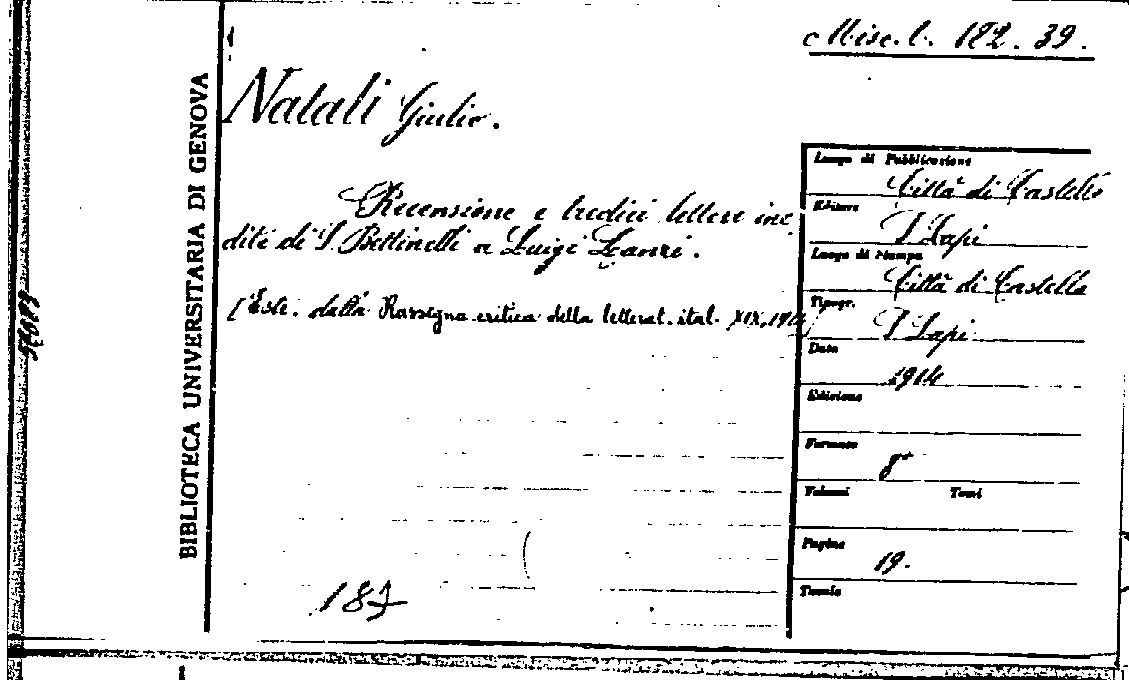 Misc. b. 182. 39.
BIBLIOTECA UNIVERSITARIA DI GENOVA
Natali Giulio.
Recensione e tredici lettere ine
dite di S. Bettinelli a Luigi Lanzi.
[Estr. dalla Rassegna critica della letterat. ital. XIX, 1914]
187
Luogo di Pubblicazione
Città di Castello
Editore
S. Lapi
Luogo di Stampa
Città di Castello
Tipogr.
S. Lapi
Data
1914
Edizione
Formato
8°
Volumi Tomi
Pagine
19.
Tavole